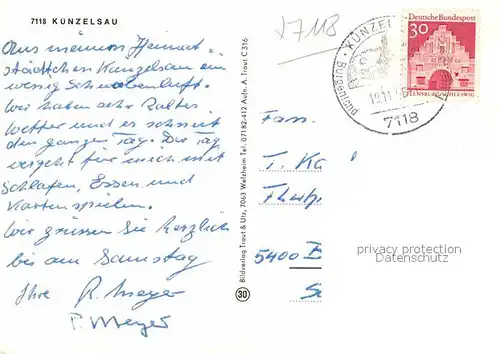 7118 KÜNZELSAU
Aus meinem Heimat-
städtchen Künzelsau ein
wenig Schwabenluft.
Wir haben sehr kaltes
Wetter und es schneit
den ganzen Tag. Der Tag
vergeht für mich mit
Schlafen, Essen und
Kartenspielen.
Wir grüssen Sie herzlich
bis am Samstag
Ihre R. Meyer
P. Meyer
Bildverlag Trost & Utz, 7063 Welzheim Tel. 07182-412 Aufn. A. Trost C 316
30
7118
KÜNZEL
7118
Deutsche Bundespost
30
FLENSBURG/SCHLESWIG
Fam.
T. Ka
5400
privacy protection
Datenschutz